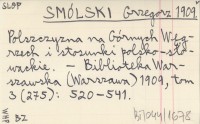 SŁBP
SMÓLSKI Grzegorz 1909.
Polszczyzna na Górnych Węg-
rzech i stosunki polsko-sło-
wackie. – Biblioteka War-
szawska (Warszawa) 1909, tom
3 (275): 520-541.
WHP BZ